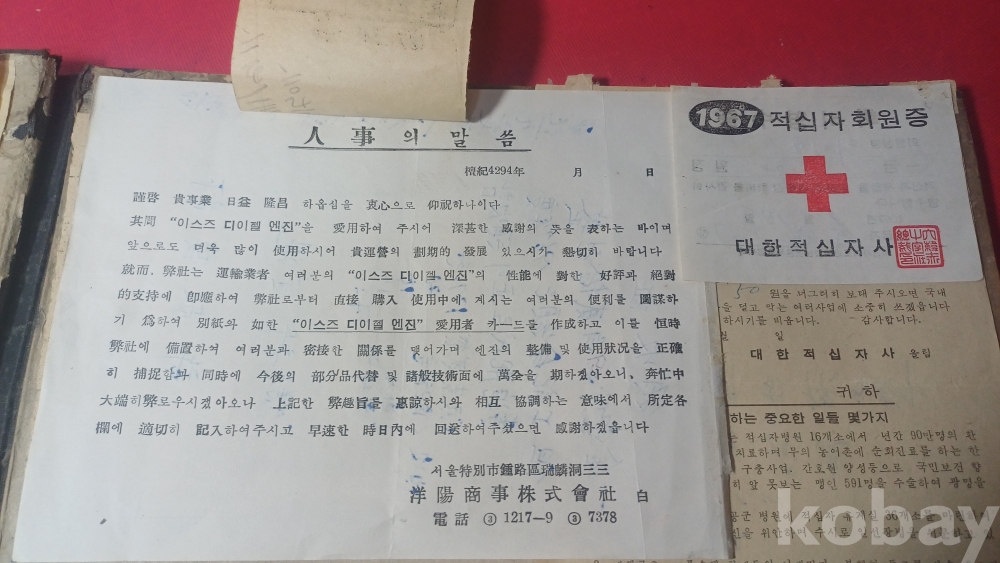 人事의 말씀
檀紀4294年 月 日
謹啓 貴事業 日益 隆昌 하읍심을 衷心으로 仰祝하나이다
其間 “이스즈 디이젤 엔진”을 愛用하여 주시어 深甚한 感謝의 뜻을 表하는 바이며
앞으로도 더욱 많이 使用하시어 貴運營의 劃期的 發展 있으시가 懇切히 바랍니다
就而, 弊社는 運輸業者 여러분의 “이스즈 디이젤 엔진”의 性能에 對한 好評과 絕對
的支持에 卽應하여 弊社로부터 直接 購入 使用中에 계시는 여러분의 便利를 圖謀하
기 爲하여 別紙와 如한 “이스즈 디이젤 엔진” 愛用者 카ー드를 作成하고 이를 恒時
弊社에 備置하여 여러분과 密接한 關係를 맺어가며 엔진의 整備 및 使用狀況을 正確
히 捕捉함과 同時에 今後의 部分品代替 및 諸般技術面에 萬全을 期하겠아오니, 奔忙中
大端히 弊로우시겠아오나 上記한 弊趣旨를 惠諒하시와 相互 協調하는 意味에서 所定各
欄에 適切히 記入하여주시고 早速한 時日內에 回送하여주셨으면 感謝하겠읍니다
서울特別市鍾路區瑞麟洞三三
洋陽商事株式會社 白
電話 ③ 1217—9 ③ 7378
1967 적십자회원증
대한적십자사
50 원을 너그러히 보태 주시오면 국내
돕고 있는 여러사업에 소중히 쓰겠읍니다
하시기를 비옵니다. 감사합니다.
월 일
대한적십자사 올림
귀하
하는 중요한 일들 몇가지
는 적십자병원 16개소에서 년간 90만명의 환
치료하며 우의 농어촌에 순회진료를 하는 한
구충사업. 간호원 양성등으로 국민보건 향
히 앞 못보는 맹인 591명을 수술하여 광명을
공군 병원에 적십자
kobay